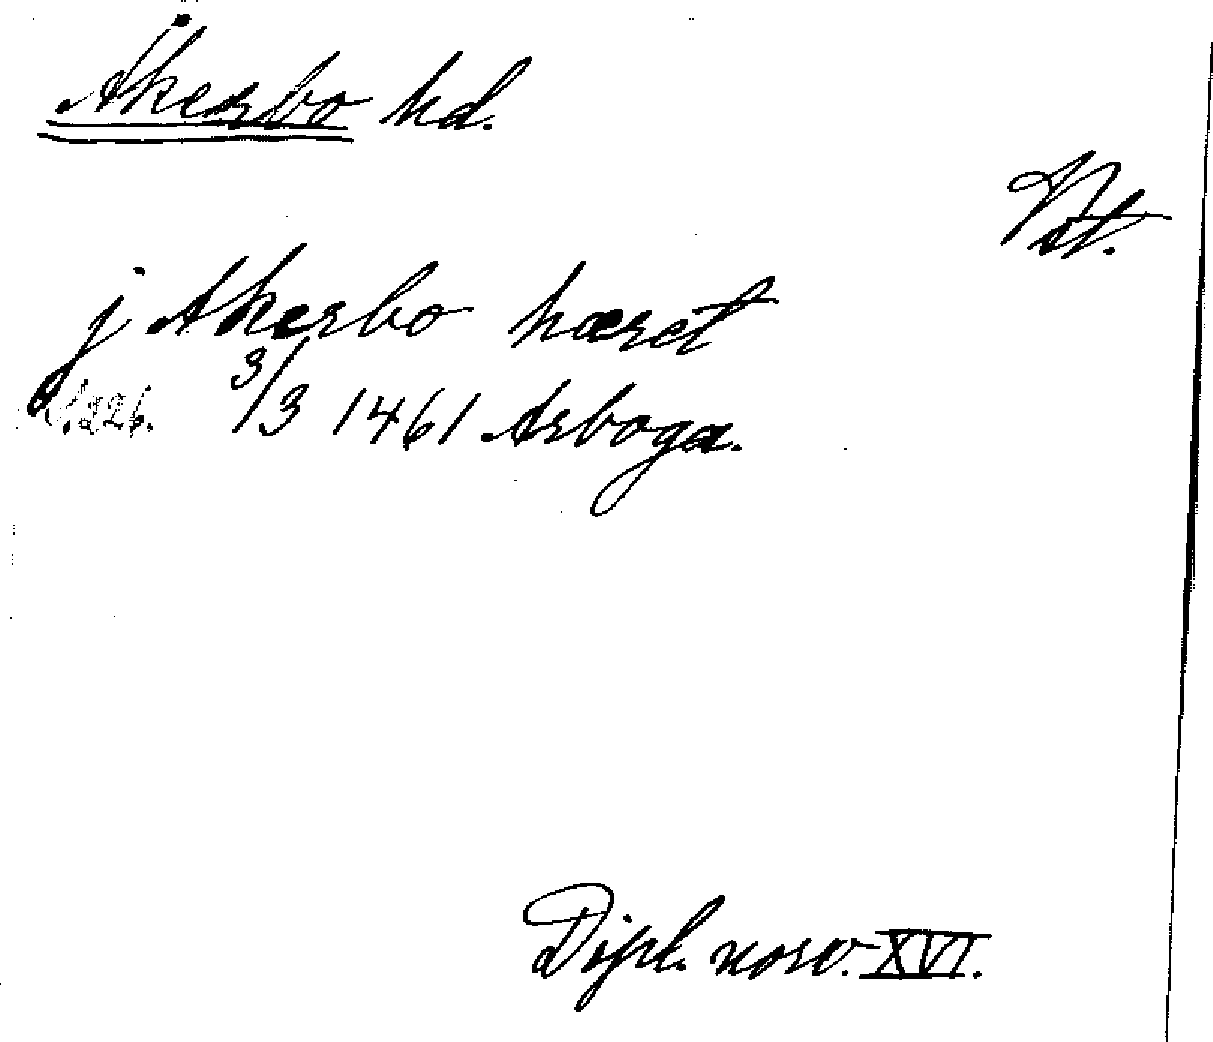 Åkerbo hd.
Vst.
j Akerbo hæret
s. 226. 3/3 1461 Arboga.
Dipl. norv. XVI.